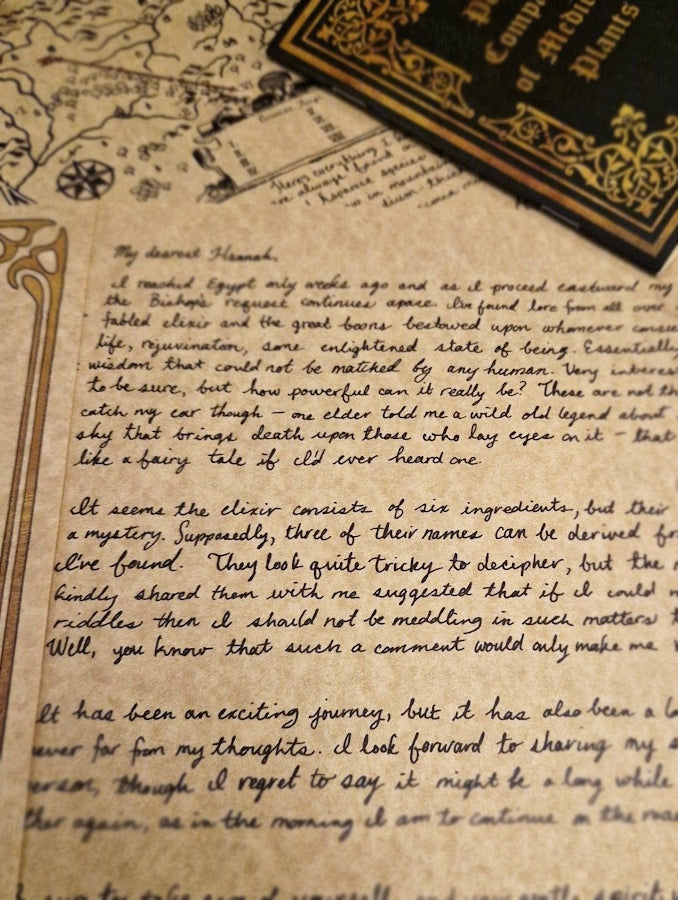 of Medi
Plants
My dearest Hannah,
I reached Egypt only weeks ago and as I proceed eastward my
the Bishop's request continues apace. I've found lore from all over
fabled elixir and the great boons bestowed upon whomever
life, rejuvination, some enlightened state of being. Essentially
wisdom that could not be matched by any human. Very
to be sure, but how powerful can it really be? These are not
catch my ear though – one elder told me a wild old legend about
sky that brings death upon those who lay eyes on it – that
like a fairy tale if I'd ever heard one.
It seems the elixir consists of six ingredients, but their
a mystery. Supposedly, three of their names can be derived
I've found. They look quite tricky to decipher, but the
kindly shared them with me suggested that if I could
riddles then I should not be meddling in such matters
Well, you know that such a comment would only make me
It has been an exciting journey, but it has also been a
never far from my thoughts. I look forward to sharing my
though I regret to say it might be a long while
again, as in the morning I am to continue on the